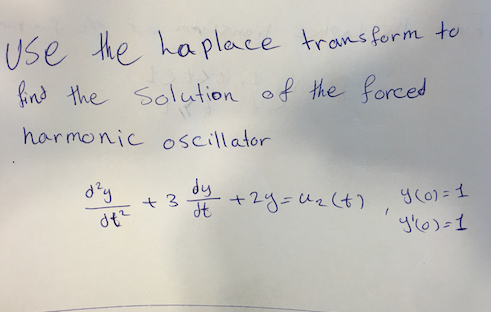 Use the Laplace transform to
find the solution of the forced
harmonic oscillator
d²y/dt² + 3 dy/dt + 2y = u₂(t) , y(0)=1
y'(0)=1